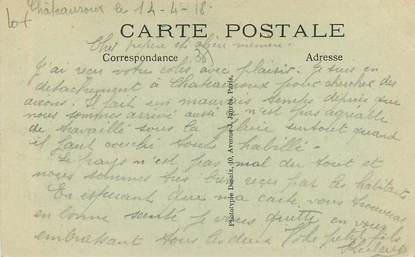 Châteauroux le 14-4-18.
Lot
CARTE POSTALE
Cher petite et chère mémère.
Correspondance
(36)
Adresse
J'ai reçu votre colis avec plaisir. Je suis en
detachement à Chateauroux pour chercher des
avions. Il fait un mauvais temps depuis que
nous sommes arrivé aussi n'est pas agréable
de travaillé sous la pluie surtout quand
il faut couché touts habillé.
Le pays n'est pas mal du tout et
nous sommes très bien reçus par les habitant.
En esperant que ma carte vous trouveras
en bonne santé je vous quitte en vous
embrassant tous les deux Votre petit fils
Phototypie Daniel Delboy, 10, Avenue J. Jaurès, Paris.